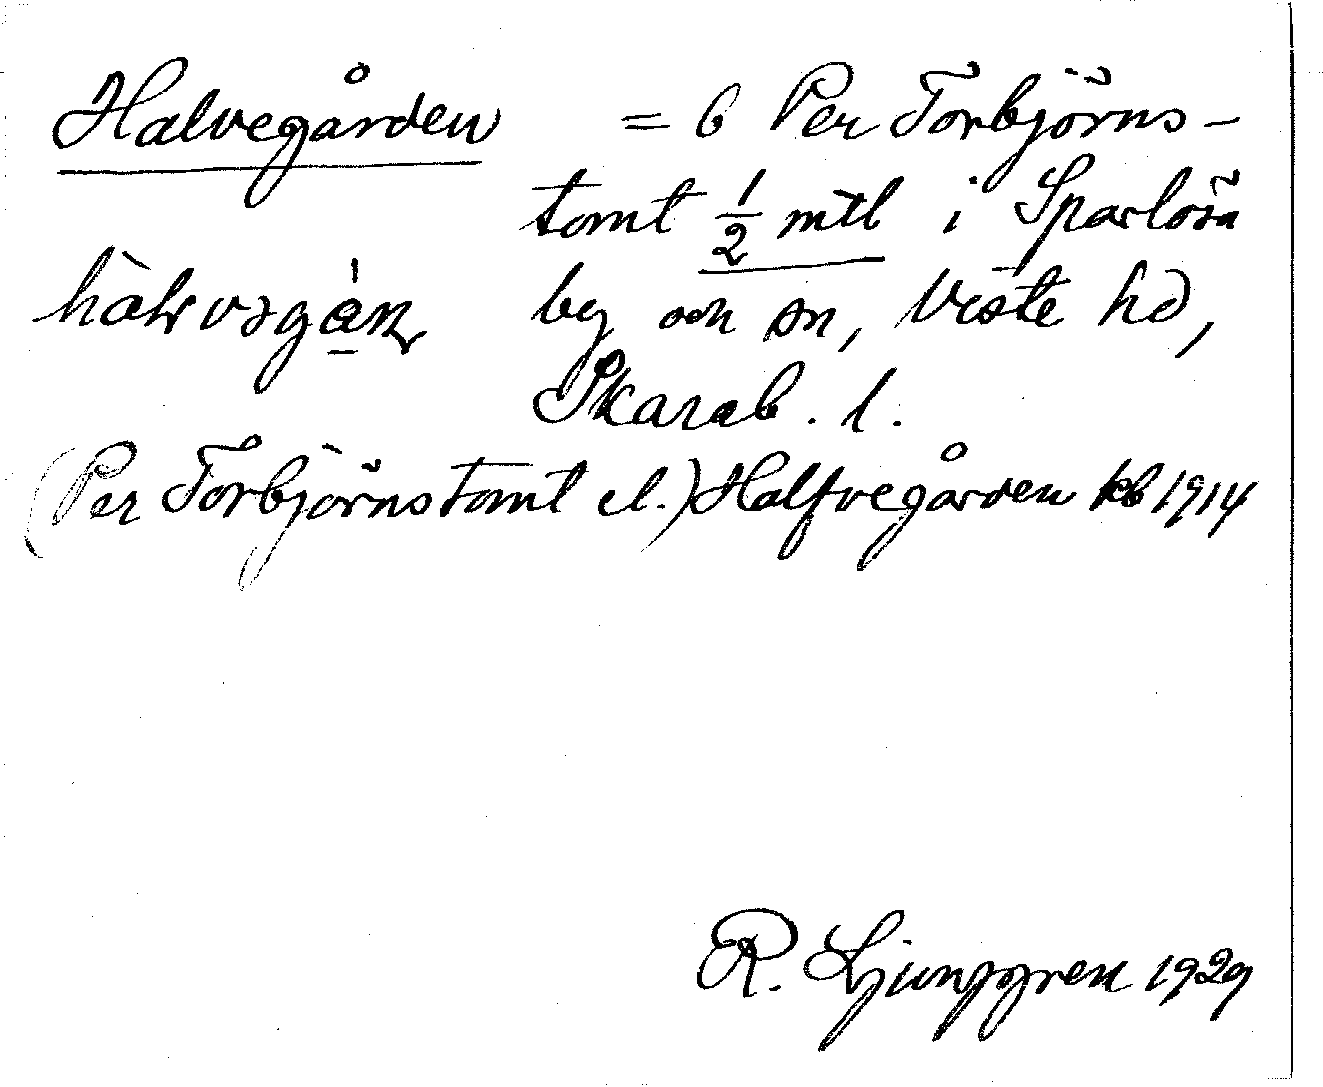 Halvegården = 6 Per Torbjörns-
tomt ½ mtl i Sparlösa
by och sn, Viste hd,
Skarab. l.
(Per Torbjörnstomt el.) Halfvegården kb 1914
R. Ljunggren 1929